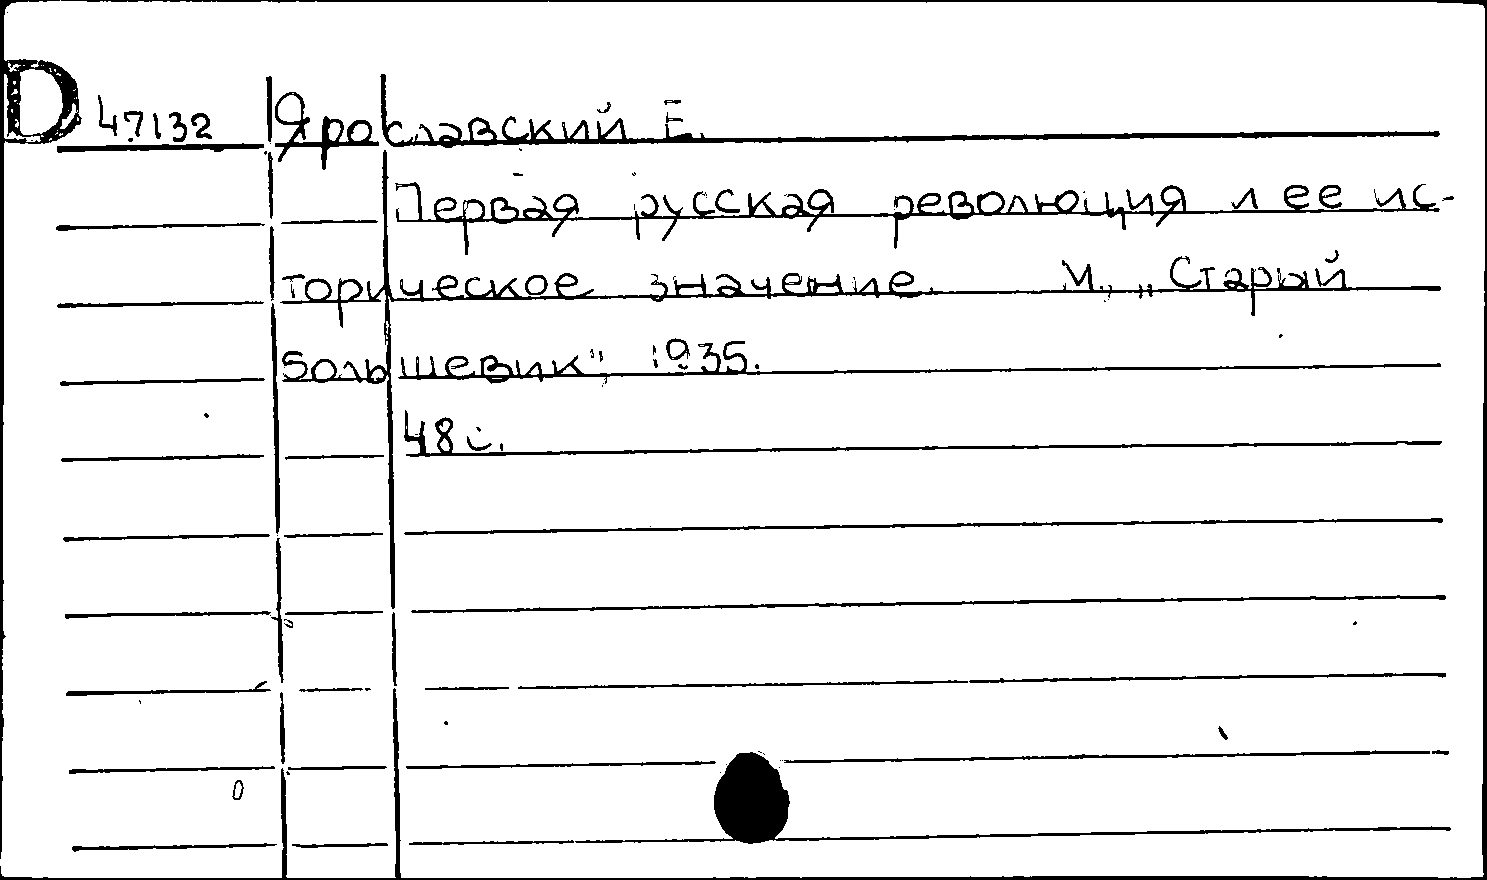 D 47132 Ярославский Е.
Первая русская революция и ее ис-
торическое значение. М., „Старый
большевик", 1935.
48 с.